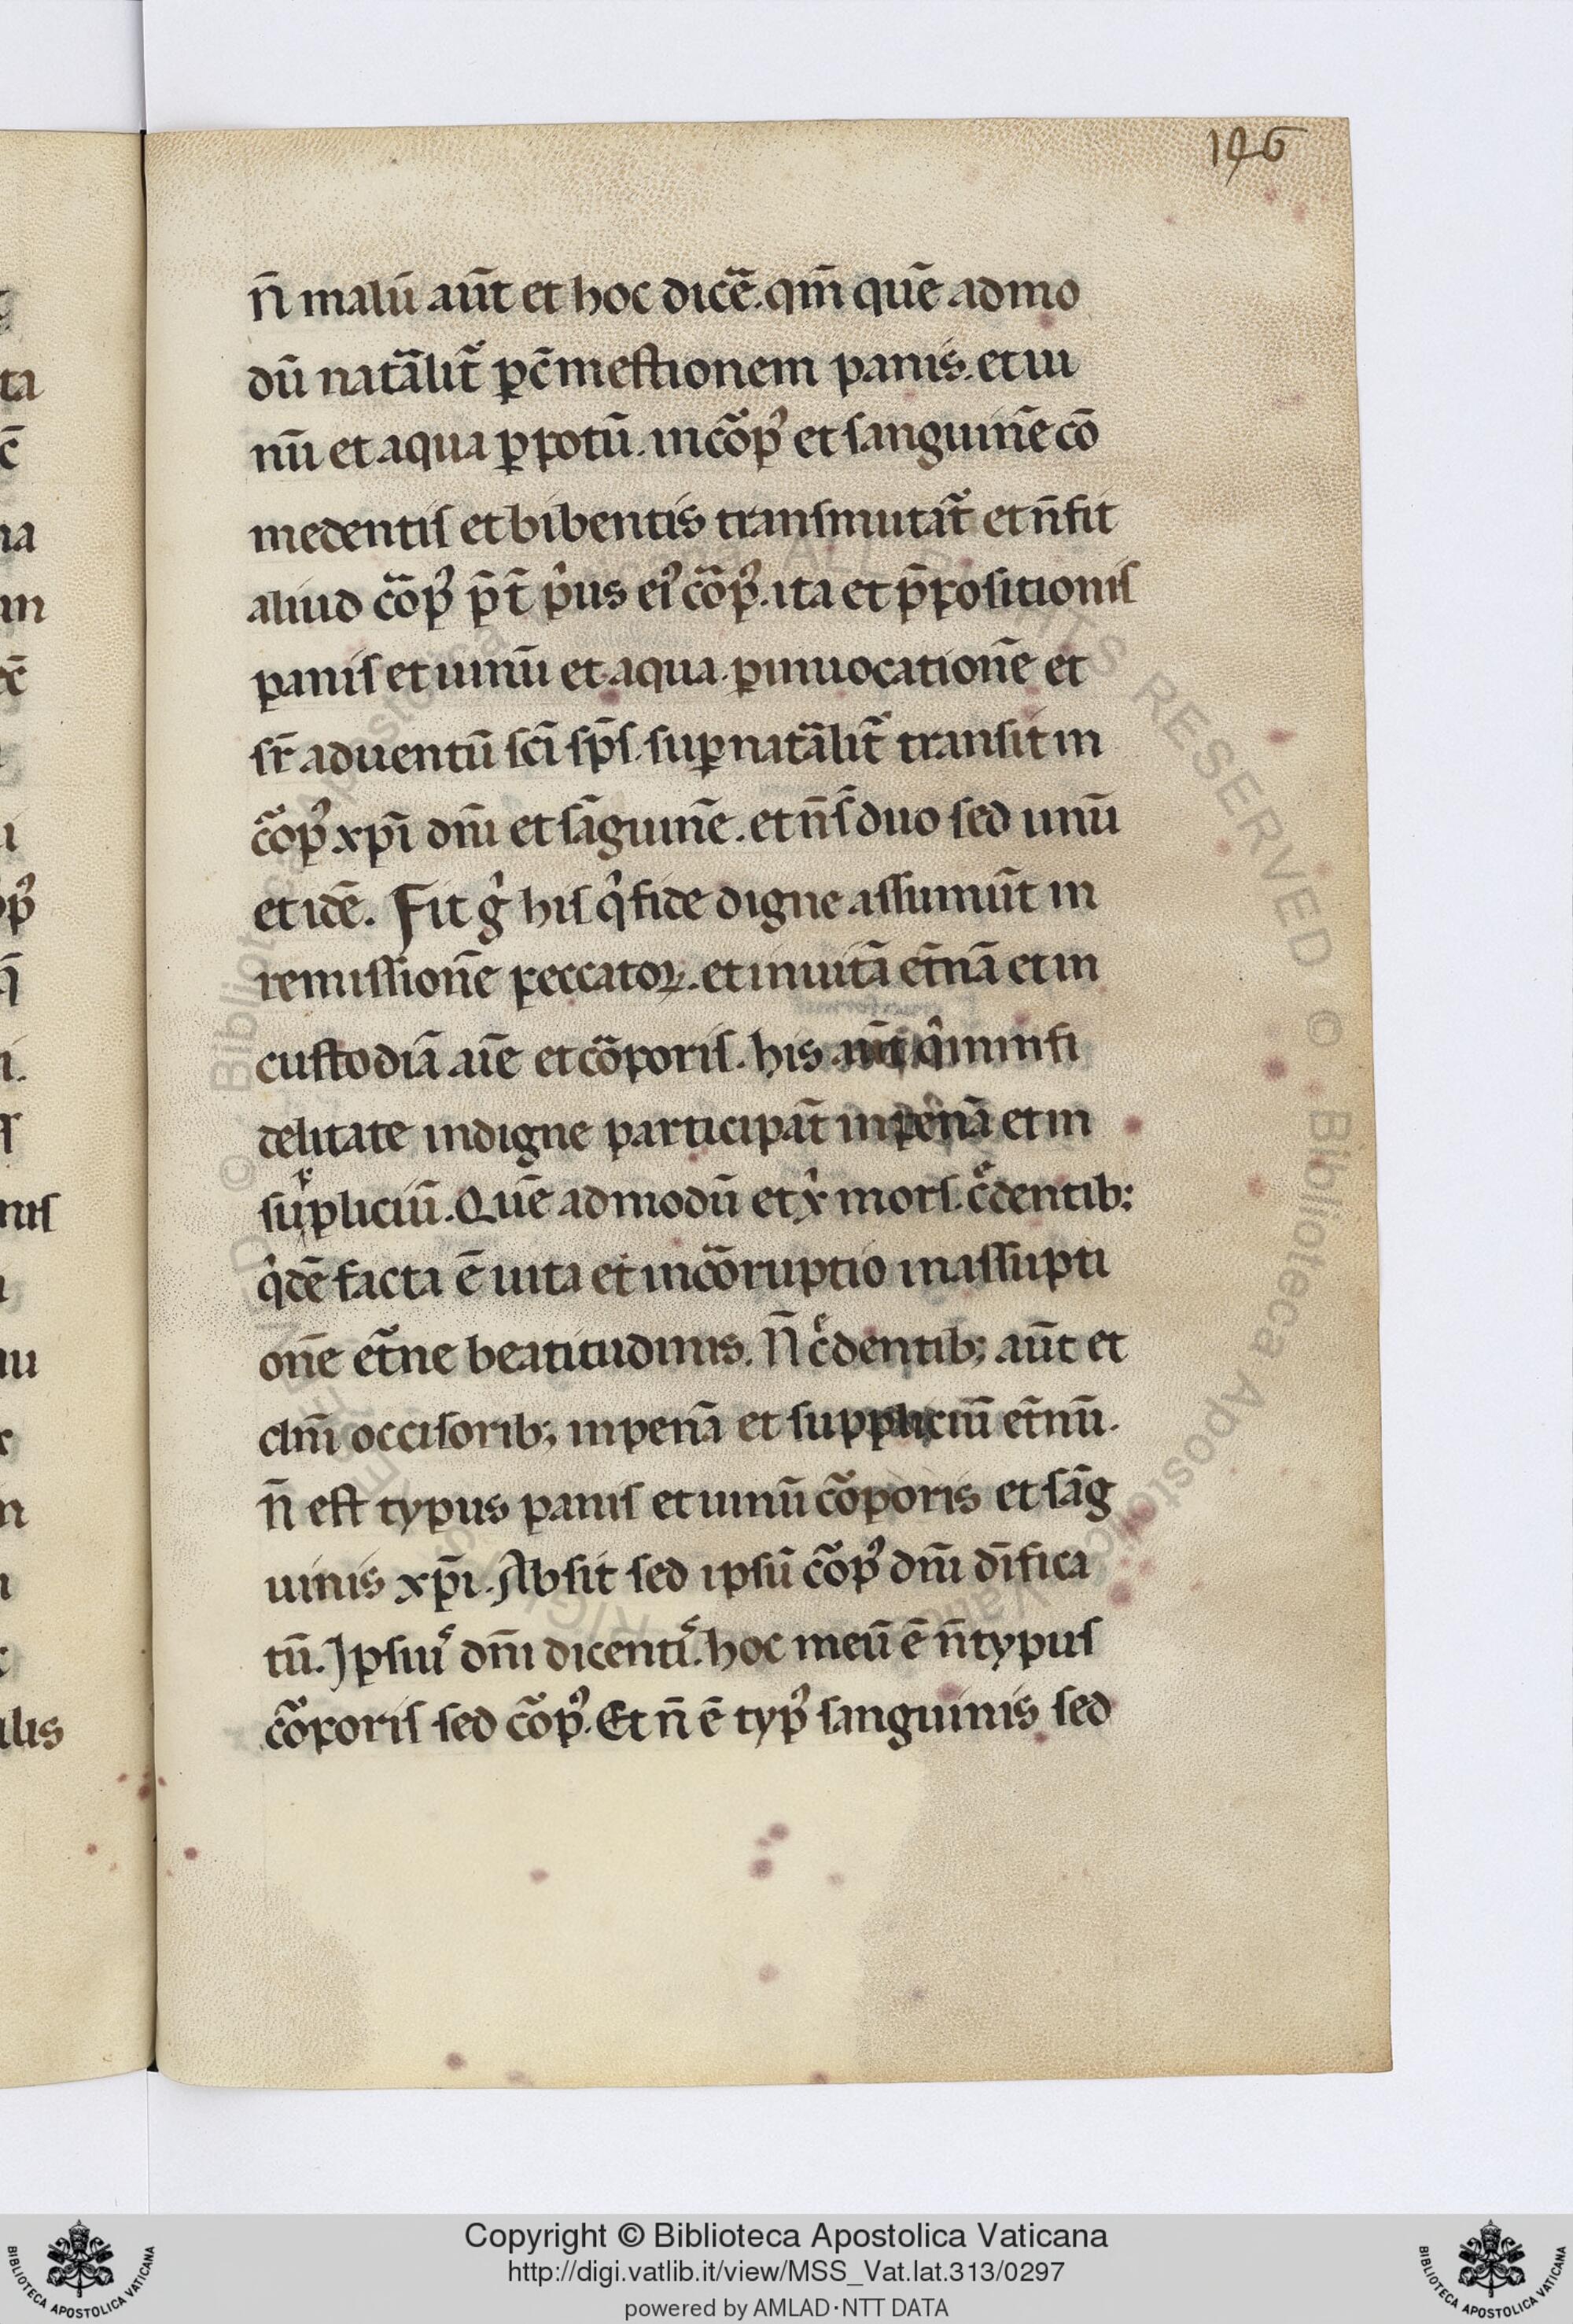 196
n̄ malū aūt et hoc dicẽ. qm̄ quē admo
dū natãlit᷑ ꝑc̄mestionem panis. et ui
nū et aqua ꝑ potū. in cõpꝰ et sanguinē cō
medentis et bibentis transmutat᷑ et n̄ fit
aliud cõpꝰ p̄t̄ pͥus eiꝰ cõpꝰ. ita et p̄positionis
panis et uinū et aqua. ꝑ inuocationē et
sr̄ aduentū sc̄i sp̄s. suꝑnatãlit᷑ transit in
cõpꝰ xp̄i dn̄i et sāguinē. et n̄ s̄ duo sed unū
et idē. Fit gͥ his qͥ fide digne assumūt in
remissionē peccatoꝝ. et in uitā et̄nā et in
custodiā aīe et cõporis. his aūt qͥ in infi
delitate indigne participāt in penā et in
suppliciū. Quē admodū et xͥ mors. c͛dentib;
qͥdē facta ē uita et incõruptio in assupti
onē et᷑ne beatitudinis. N̄ c͛dentib; aūt et
dn̄i occisorib; in penā et suppliciū et̄nū.
n̄ est typus panis et uinū cõporis et sāg
uinis xp̄i. Absit sed ipsū cõpꝰ dn̄i dīfica
tū. Ipsiuˢ dn̄i dicentiˢ. hoc meū ē n̄ typus
cõporis sed cõpꝰ. Et n̄ ē typꝰ sanguinis sed
ta
c̄
na
in
i
pꝰ
q̄
i.
nis
uu
n
ilis
© Biblioteca Apostolica Vaticana. ALL RIGHTS RESERVED
Copyright © Biblioteca Apostolica Vaticana
http://digi.vatlib.it/view/MSS_Vat.lat.313/0297
powered by AMLAD·NTT DATA
BIBLIOTECA APOSTOLICA VATICANA
BIBLIOTECA APOSTOLICA VATICANA